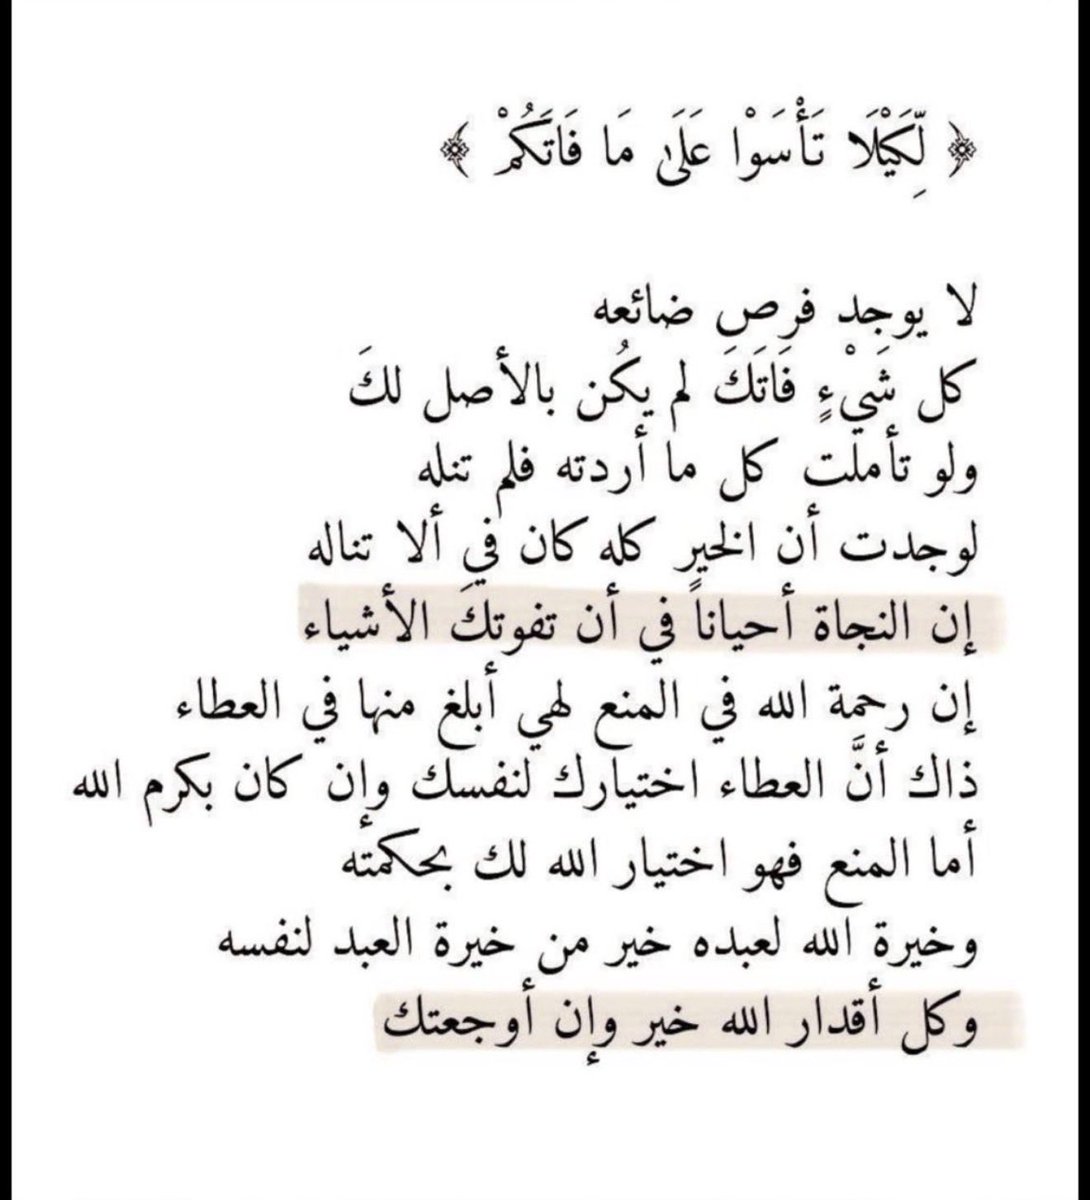 ﴿ لِّكَيْلَا تَأْسَوْا عَلَىٰ مَا فَاتَكُمْ ﴾
لا يوجد فرص ضائعه
كل شَيْءٍ فَاتَكَ لم يكُن بالأصل لكَ
ولو تأملت كل ما أردته فلم تنله
لوجدت أن الخير كله كان في ألا تناله
إن النجاة أحياناً في أن تفوتكَ الأشياء
إن رحمة الله في المنع لهي أبلغ منها في العطاء
ذاك أنَّ العطاء اختيارك لنفسك وإن كان بكرم الله
أما المنع فهو اختيار الله لك بحكمته
وخيرة الله لعبده خير من خيرة العبد لنفسه
وكل أقدار الله خير وإن أوجعتك